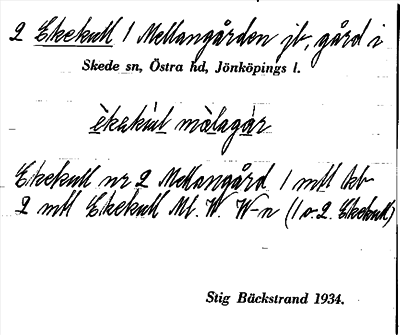 2 Ekekull 1 Mellangården jb, gård i
Skede sn, Östra hd, Jönköpings l.
èkəkùl mèlagàr
Ekekull nr 2 Mellangård 1 mtl kb
2 mtl Ekekull Ml. W. W-n (1 o. 2. Ekekull)
Stig Bäckstrand 1934.